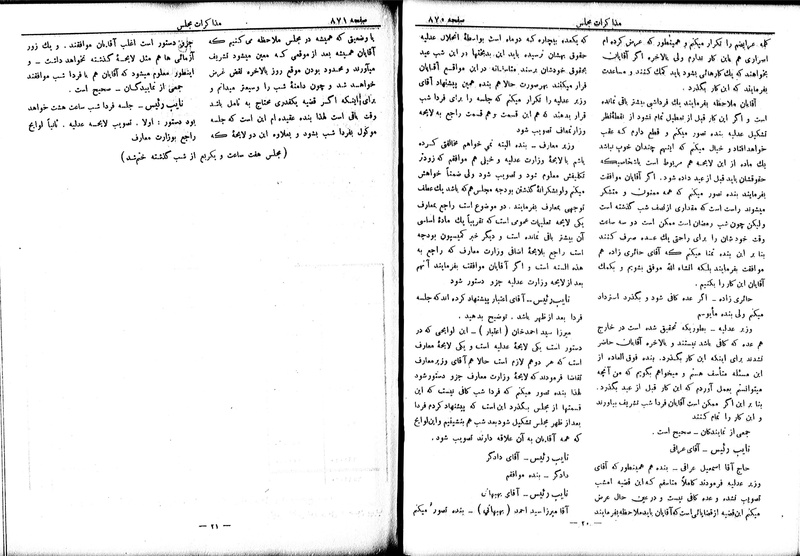 صفحه ۸۷۰ مذاکرات مجلس
کلیه عرایضم را تکرار میکنم و همینطور که عرض کرده ام
اصراری هم باین کار ندارم ولی بالاخره اگر آقایان
بخواهند که یک کارهائی بشود باید کمک کنند و مساعدت
بفرمایند که این کار بگذرد.
آقایان ملاحظه بفرمایند یک فرداشبی بیشتر باقی نمانده
است و اگر این کار قبل از تعطیل تمام نشود از نقطه‌نظر
تشکیل عدلیه بنده تصور میکنم و قطع دارم که عقب
خواهد افتاد و خیال میکنم که اینهم چندان خوب نباشد
یک ماده از این لایحه هم مربوط است باشخاصیکه
حقوقشان باید قبل از عید داده شود. اگر آقایان موافقت
بفرمایند بنده تصور میکنم که همه ممنون و متشکر
میشوند راست است که مقداری از نصف شب گذشته است
ولیکن چون شب رمضان است ممکن است دو سه ساعت
وقت خودشان را برای راحتی یک عده صرف کنند
بنا بر این بنده تمنا میکنم که آقای حائری زاده هم
موافقت بفرمایند بلکه انشاء الله موفق بشویم و بکمک
آقایان این کار را بکنیم.
حائری زاده ـ اگر عده کافی شود و بگذرد استرداد
میکنم ولی بنده مأیوسم
وزیر عدلیه ـ بطوریکه تحقیق شده است در خارج
هم عده که کافی باشد نیستند و بالاخره آقایان حاضر
نشدند برای اینکه این کار بگذرد. بنده فوق العاده از
این مسئله متأسف هستم و میخواهم بگویم که من آنچه
میتوانستم بعمل آوردم که این کار قبل از عید بگذرد.
بنا بر این اگر ممکن است آقایان فردا شب تشریف بیاورند
و این کار را تمام کنند
جمعی از نمایندگان ـ صحیح است.
نایب رئیس ـ آقای عراقی
حاج آقا اسمعیل عراقی ـ بنده هم همینطور که آقای
وزیر عدلیه فرمودند کاملا متأسفم که این قضیه امشب
تصویب نشده و عده کافی نیست و در عین حال عرض
میکنم این قضیه از قضایائی است که آقایان باید ملاحظه بفرمایند
که یکعده بیچاره که دو ماه است بواسطهٔ انحلال عدلیه
بحقوق خودشان نرسیده باید این بدبختها در این شب عید
بحقوق خودشان برسند متأسفانه در این مواقع آقایان
فرار میکنند بهر صورت حالا هم بنده همین پیشنهاد آقای
وزیر عدلیه را تکرار میکنم که جلسه را برای فردا شب
قرار بدهند که هم این قسمت و هم قسمت راجع به لایحه
وزارت معارف تصویب شود
وزیر معارف ـ بنده البته نمی خواهم مخالفتی کرده
باشم با لایحهٔ وزارت عدلیه و خیلی هم موافقم که زودتر
تکلیفش معلوم شود و تصویب شود ولی ضمناً خواهش
میکنم ولو بشکرانهٔ گذشتن بودجه مجلس هم که باشد یک عطف
توجهی بمعارف بفرمایند. دو موضوع است راجع بمعارف
یکی لایحه تعلیمات عمومی است که تقریباً یک مادهٔ اساسی
آن بیشتر باقی نمانده است و دیگر خبر کمیسیون بودجه
است راجع بلایحهٔ اضافی وزارت معارف که راجع به
هذه السنه است و اگر آقایان موافقت بفرمایند آنهم
بعد از لایحه وزارت عدلیه جزو دستور شود
نایب رئیس ـ آقای اعتبار پیشنهاد کرده اند که جلسه
فردا بعد از ظهر باشد. توضیح بدهید.
میرزا سید احمدخان (اعتبار) ـ این لوایحی که در
دستور است یکی لایحهٔ عدلیه است و یکی لایحهٔ معارف
است که هر دو هم لازم است حالا هم آقای وزیر معارف
تقاضا فرمودند که لایحهٔ وزارت معارف جزو دستور شود
لهذا بنده تصور میکنم که فردا شب کافی نیست که این
قسمتها از مجلس بگذرد این است که پیشنهاد کردم فردا
بعد از ظهر مجلس تشکیل شود بعد شب هم بنشینیم و این لوایح
که همه آقایان به آن علاقه دارند تصویب شود.
نایب رئیس ـ آقای دادگر
دادگر ـ بنده موافقم
نایب رئیس ـ آقای بهبهانی
آقا میرزا سید احمد (بهبهانی) ـ بنده تصور میکنم
ـ ۲۰ ـ
مذاکرات مجلس صفحه ۸۷۱
با وضعیتی که همیشه در مجلس ملاحظه می کنیم که
آقایان همیشه بعد از موقعی که معین میشود تشریف
میآورند و محدود بودن موقع روز بالاخره نقض غرض
خواهد شد و چون دامنهٔ شب را وسیعتر میدانم و
برای اینکه اگر قضیه یکقدری محتاج به تأمل باشد
وقت باقی است لهذا بنده عقیده ام این است که جلسه
موکول بفردا شب بشود و بعلاوه این دو لایحهٔ که
جزو دستور است اغلب آقایان موافقند. و یک زور
آزمائی ها هم مثل لایحهٔ گذشته نخواهد داشت ـ و
اینطور معلوم میشود که آقایان هم با فردا شب موافقند
جمعی از نمایندگان ـ صحیح است.
نایب رئیس ـ جلسه فردا شب ساعت هشت خواهد
بود دستور: اولا. تصویب لایحه عدلیه. ثانیاً لوایح
راجع بوزارت معارف
(مجلس هفت ساعت و یکربع از شب گذشته ختم شد)
ـ ۲۱ ـ